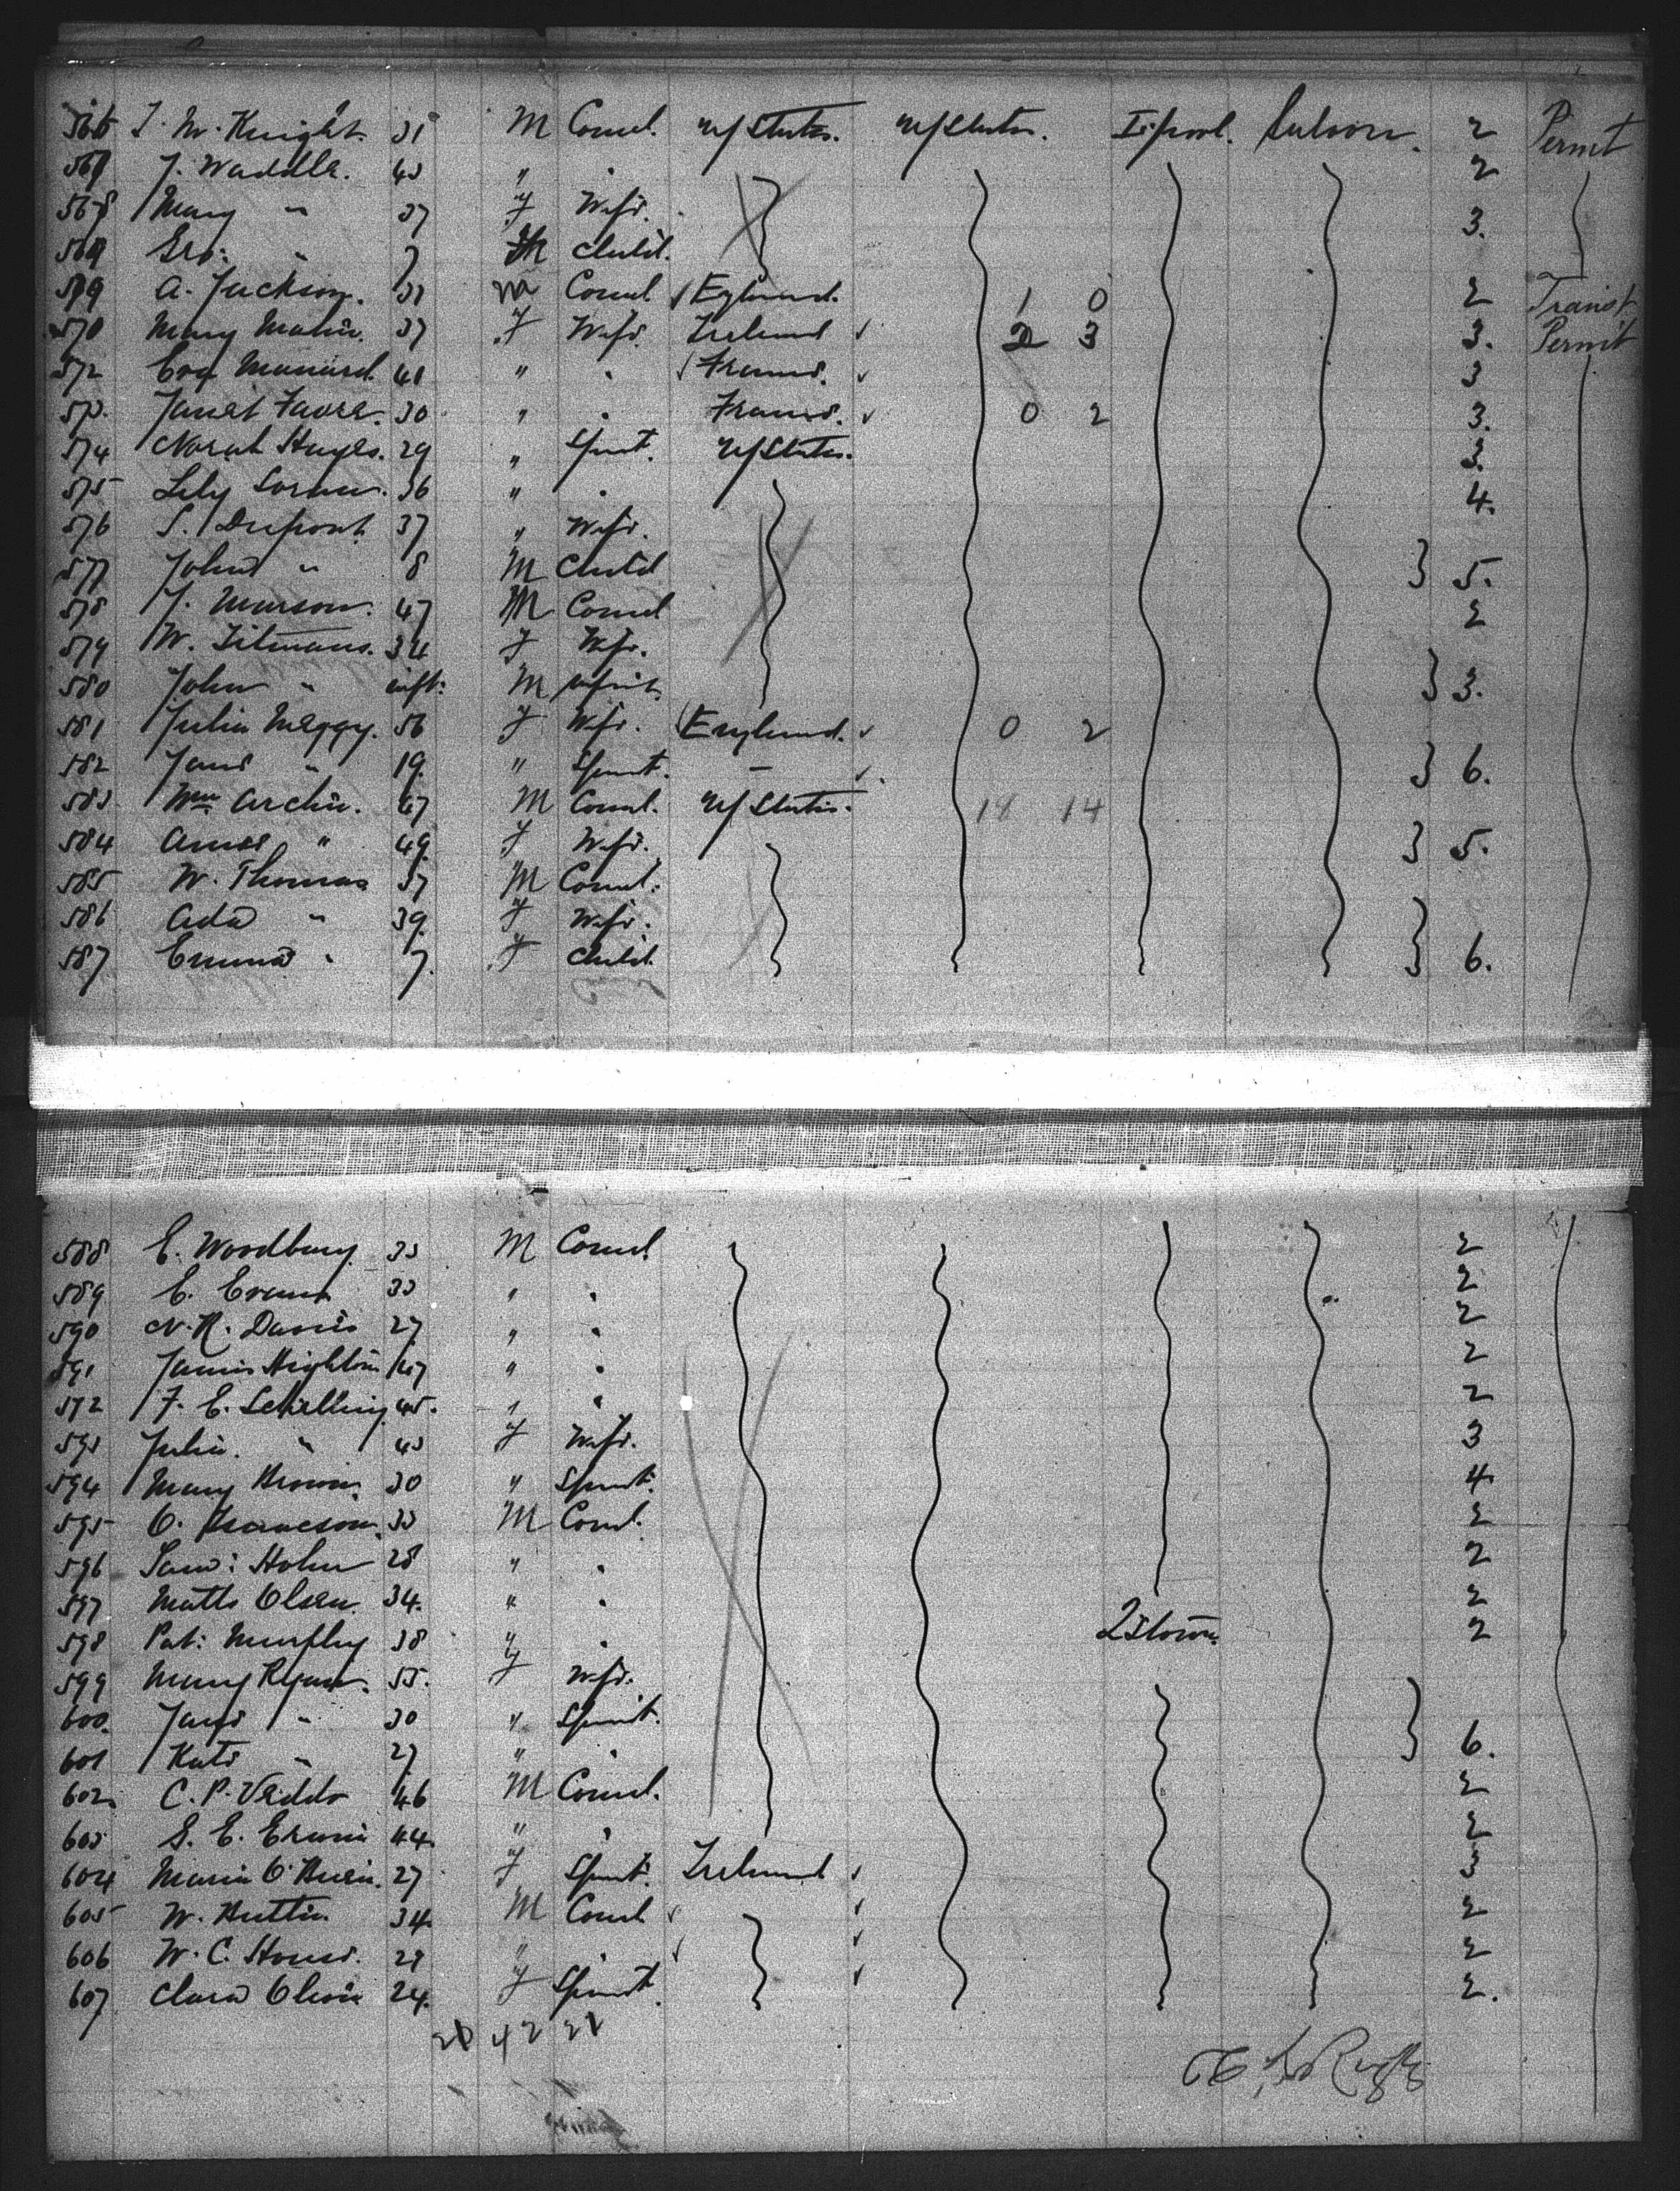 566 J. M. Knight. 31 M Coml. U/States. U/States. L'pool. Saloon. 2 Permit
567 J. Waddle. 43 " " 2
568 Mary " 37 F Wife. 3.
569 Geo: " 7 M Child.
A. Jackson. 33 M Coml England. 1 0 2 Transt
570 Mary Mahin. 37 F Wife. Ireland 2 3 3. Permit
572 Eva Manard. 41 " " France. 3
573. Janet Favre. 30 " " France. 0 2 3.
574 Norah Hayes. 29 " Spint. U/States. 3.
575 Lily Sorau. 36 " " 4.
576 S. Dupont 37 " Wife.
577 John " 8 M Child } 5.
578 J. Munson. 47 M Coml 2
579 W. Titmans. 34 F Wife.
580 John " inft: M Infnt. } 3.
581 Julia Meggy. 56 F Wife. England. 0 2
582 Jane " 19. " Spint. — } 6.
583. Wm Archin. 47 M Coml. U/States. 18 14
584 Annie " 49. F Wife. } 5.
585 W. Thomas 37 M Coml.
586 Ada " 39. F Wife.
587 Emma " 7. F Child. } 6.
588 E. Woodbury. 33 M Coml. 2
589 E. Evans 33 " " 2
590 N. R. Davis 27. " " 2
591 James Highton 47 " " 2
592 F. E. Schelling 45. " " 2
593 Julia. " 43 F Wife. 3
594 Mary Brown. 30 " Spint. 4
595 O. Isaacson. 33 M Coml. 2
596 Saml: Holm 28 " " 2
597 Matts Olsen. 34. " " 2
598 Pat: Murphy 38 " " Q'stown. 2
599 Mary Ryan. 55. F Wife.
600. Jane " 30 " Spint.
601 Kate " 27. " " } 6.
602. C. P. Veddo 46 M Coml. 2
603 S. E. Erwin 44. " " 2
604 Maria O'Brien. 27 F Spint. Ireland 3
605 W. Huttin. 34. M Coml 2
606 W. C. House. 28 " 2
607 Clara Olivia 24. F Spint. 2.
21 42 21